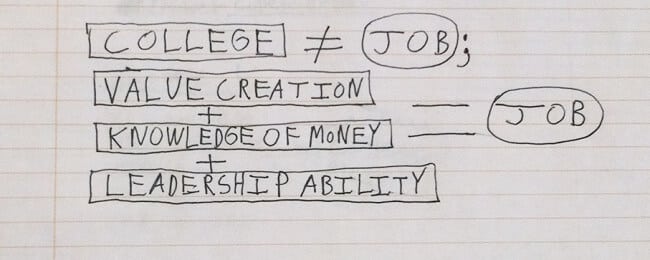 COLLEGE ≠ JOB;
VALUE CREATION
+
KNOWLEDGE OF MONEY = JOB
+
LEADERSHIP ABILITY